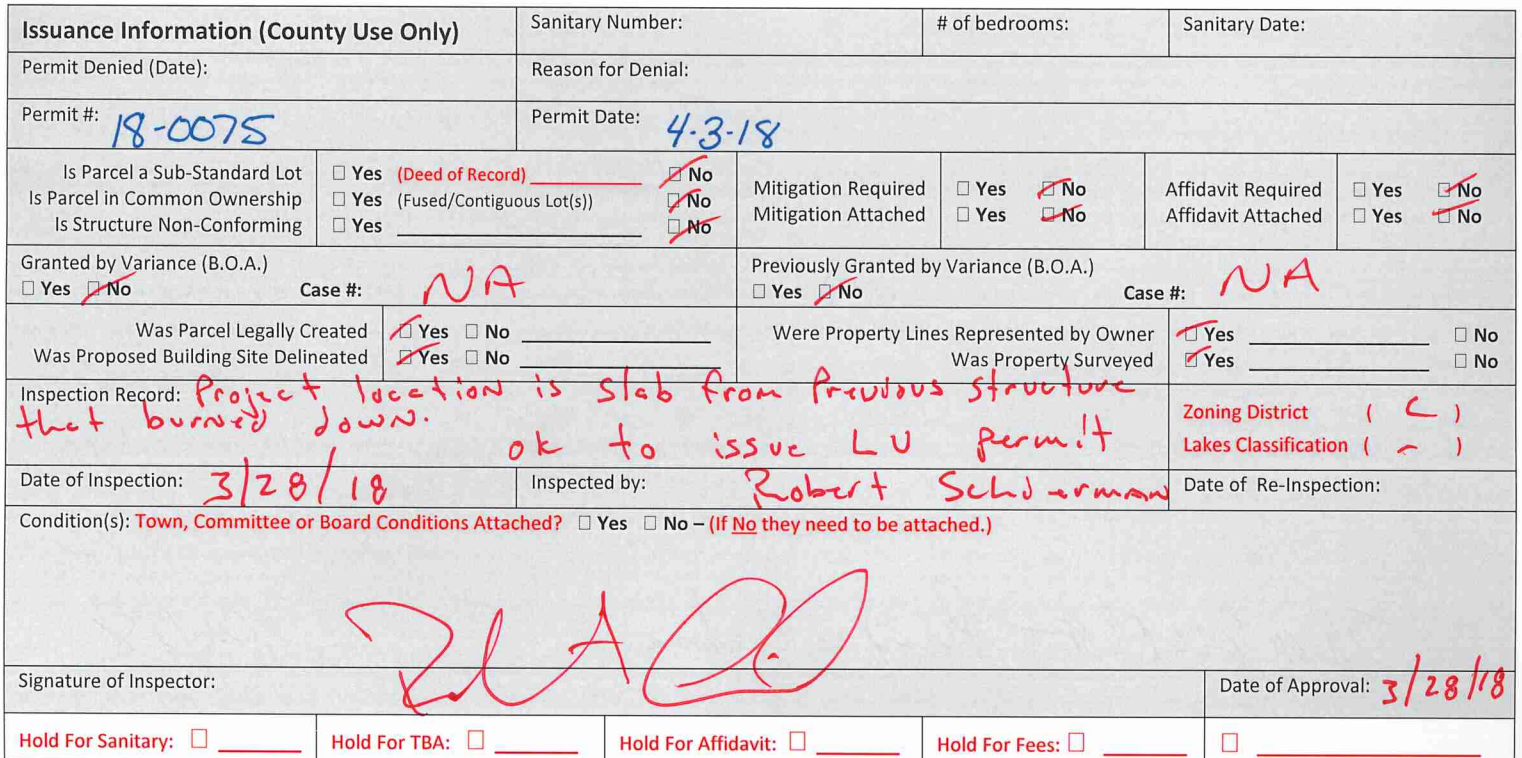 Issuance Information (County Use Only) Sanitary Number: # of bedrooms: Sanitary Date:
Permit Denied (Date): Reason for Denial:
Permit #: 18-0075 Permit Date: 4-3-18
Is Parcel a Sub-Standard Lot □ Yes (Deed of Record) ___ □ No
Is Parcel in Common Ownership □ Yes (Fused/Contiguous Lot(s)) □ No
Is Structure Non-Conforming □ Yes ___ □ No
Mitigation Required □ Yes □ No
Mitigation Attached □ Yes □ No
Affidavit Required □ Yes □ No
Affidavit Attached □ Yes □ No
Granted by Variance (B.O.A.)
□ Yes □ No Case #: NA
Previously Granted by Variance (B.O.A.)
□ Yes □ No Case #: NA
Was Parcel Legally Created □ Yes □ No ___
Was Proposed Building Site Delineated □ Yes □ No ___
Were Property Lines Represented by Owner □ Yes ___ □ No
Was Property Surveyed □ Yes ___ □ No
Inspection Record: Project location is slab from Previous structure
that burned down.
ok to issue LU permit
Zoning District ( C )
Lakes Classification ( - )
Date of Inspection: 3/28/18 Inspected by: Robert Schierman Date of Re-Inspection:
Condition(s): Town, Committee or Board Conditions Attached? □ Yes □ No – (If No they need to be attached.)
Signature of Inspector: Date of Approval: 3/28/18
Hold For Sanitary: □ ___ Hold For TBA: □ ___ Hold For Affidavit: □ ___ Hold For Fees: □ ___ □ ___